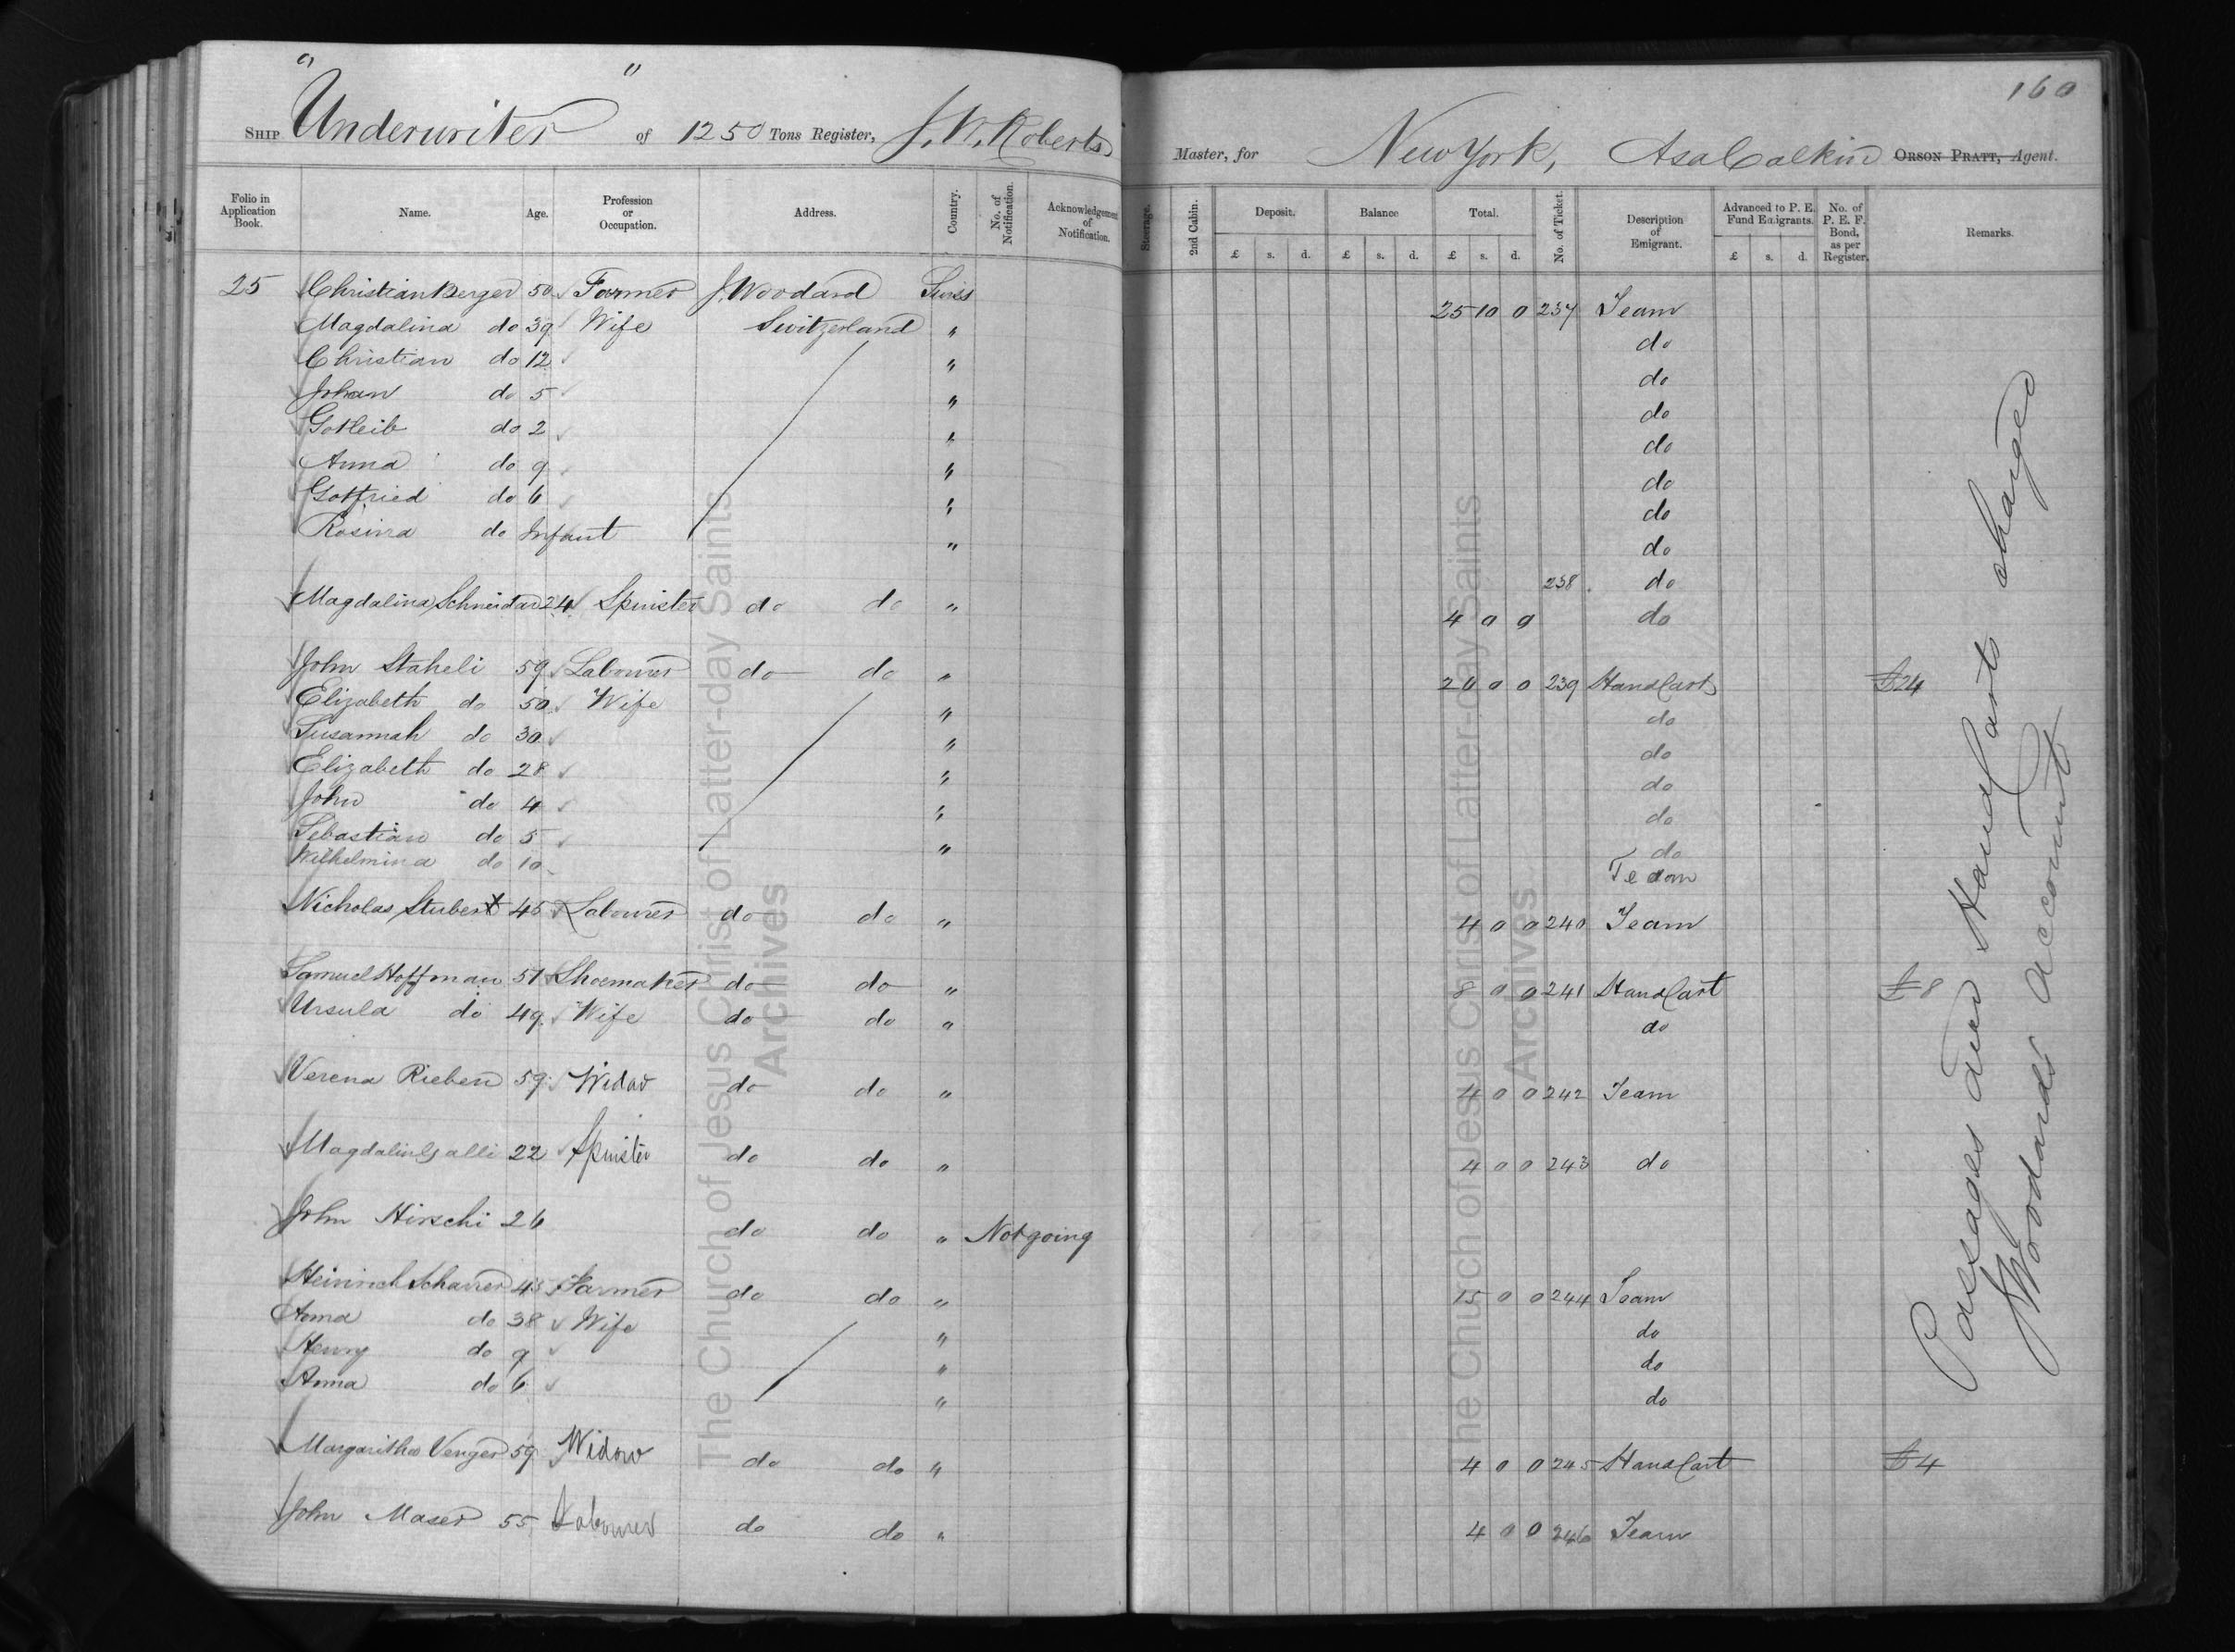 160
SHIP "Underwriter" of 1250 Tons Register, J. W. Roberts Master, for New York, Asa Calkin ORSON PRATT, Agent.
Folio in Application Book. Name. Age. Profession or Occupation. Address. Country. No. of Notification. Acknowledgement of Notification. Steerage. 2nd Cabin. Deposit. Balance Total. No. of Ticket. Description of Emigrant. Advanced to P. E. Fund Emigrants. No. of P. E. F. Bond, as per Register. Remarks.
£ s. d. £ s. d. £ s. d. £ s. d.
25 Christian Berger 50 Farmer J. Woodard Swiss 25 10 0 237 Team
Magdalina do 39 Wife Switzerland " do
Christian do 12 " do
Johan do 5 " do
Gotleib do 2 " do
Anna do 9 " do
Gotfried do 6 " do
Rosina do Infant " do
Magdalina Schneidar 24 Spinster do do " 238 do
4 0 0 do
John Staheli 59 Labourer do do " 20 0 0 239 Hand Cart £24
Elizabeth do 50 Wife " do
Susannah do 30 " do
Elizabeth do 28 " do
John do 4 " do
Sebastian do 5 " do
Wilhelmina do 10 Team
Nicholas Stubert 45 Labourer do do " 4 0 0 240 Team
Samuel Hoffman 51 Shoemaker do do " 8 0 0 241 Hand Cart £8
Ursula do 49 Wife do do " do
Verena Rieben 59 Widow do do " 4 0 0 242 Team
Magdalin Galli 22 Spinster do do " 4 0 0 243 do
John Hirschi 26 do do " Not going
Heinrich Scharrer 43 Farmer do do " 15 0 0 244 Team
Anna do 38 Wife " do
Henry do 9 " do
Anna do 6 " do
Margaritha Venger 59 Widow do do " 4 0 0 245 Hand Cart £4
John Maser 55 Labourer do do " 4 0 0 246 Team
Passages and Hand Carts charged
J Woodards account
The Church of Jesus Christ of Latter-day Saints
Archives
The Church of Jesus Christ of Latter-day Saints
Archives